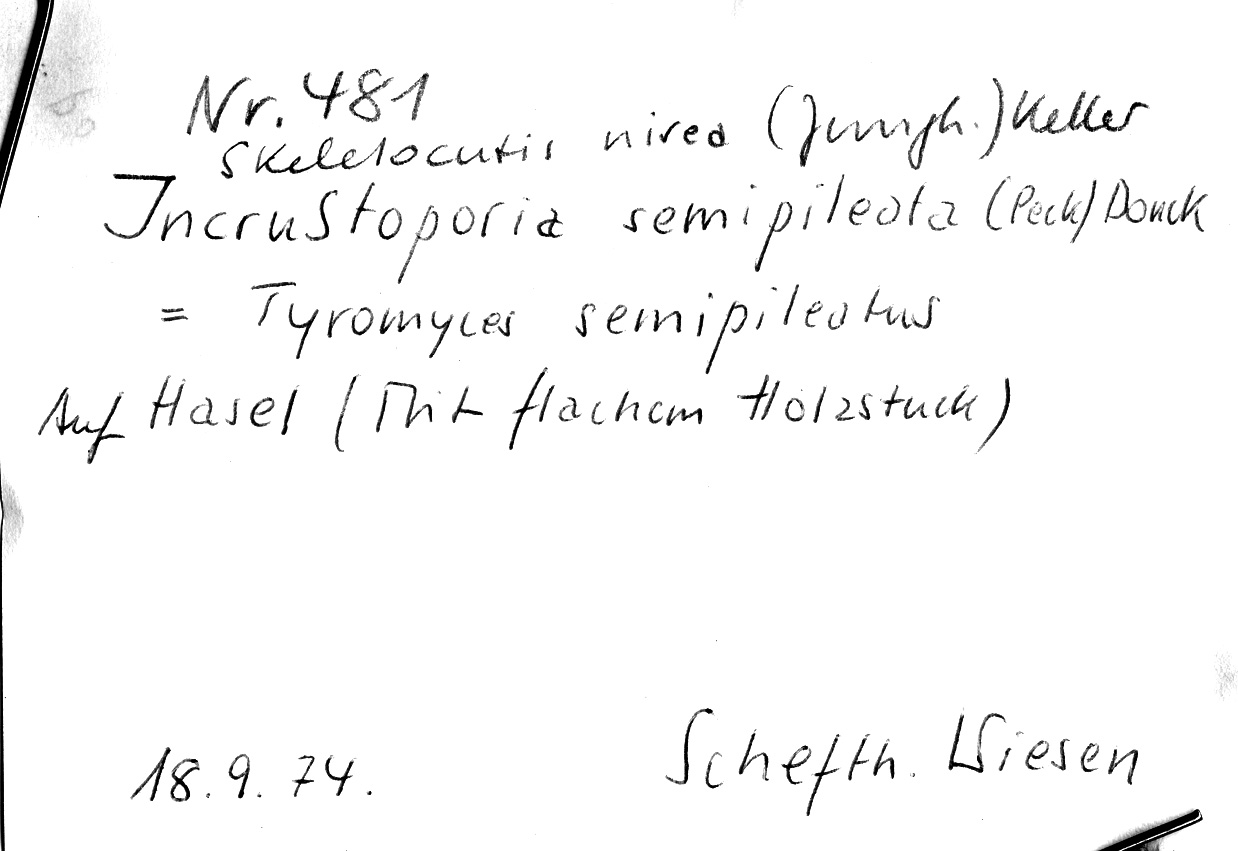 Nr. 481
Skeletocutis nivea (Jungh.) Keller
Incrustoporia semipileata (Peck) Donck
= Tyromyces semipileatus
Auf Hasel (Mit flachem Holzstuck)
18.9.74.
Schefth. Wiesen